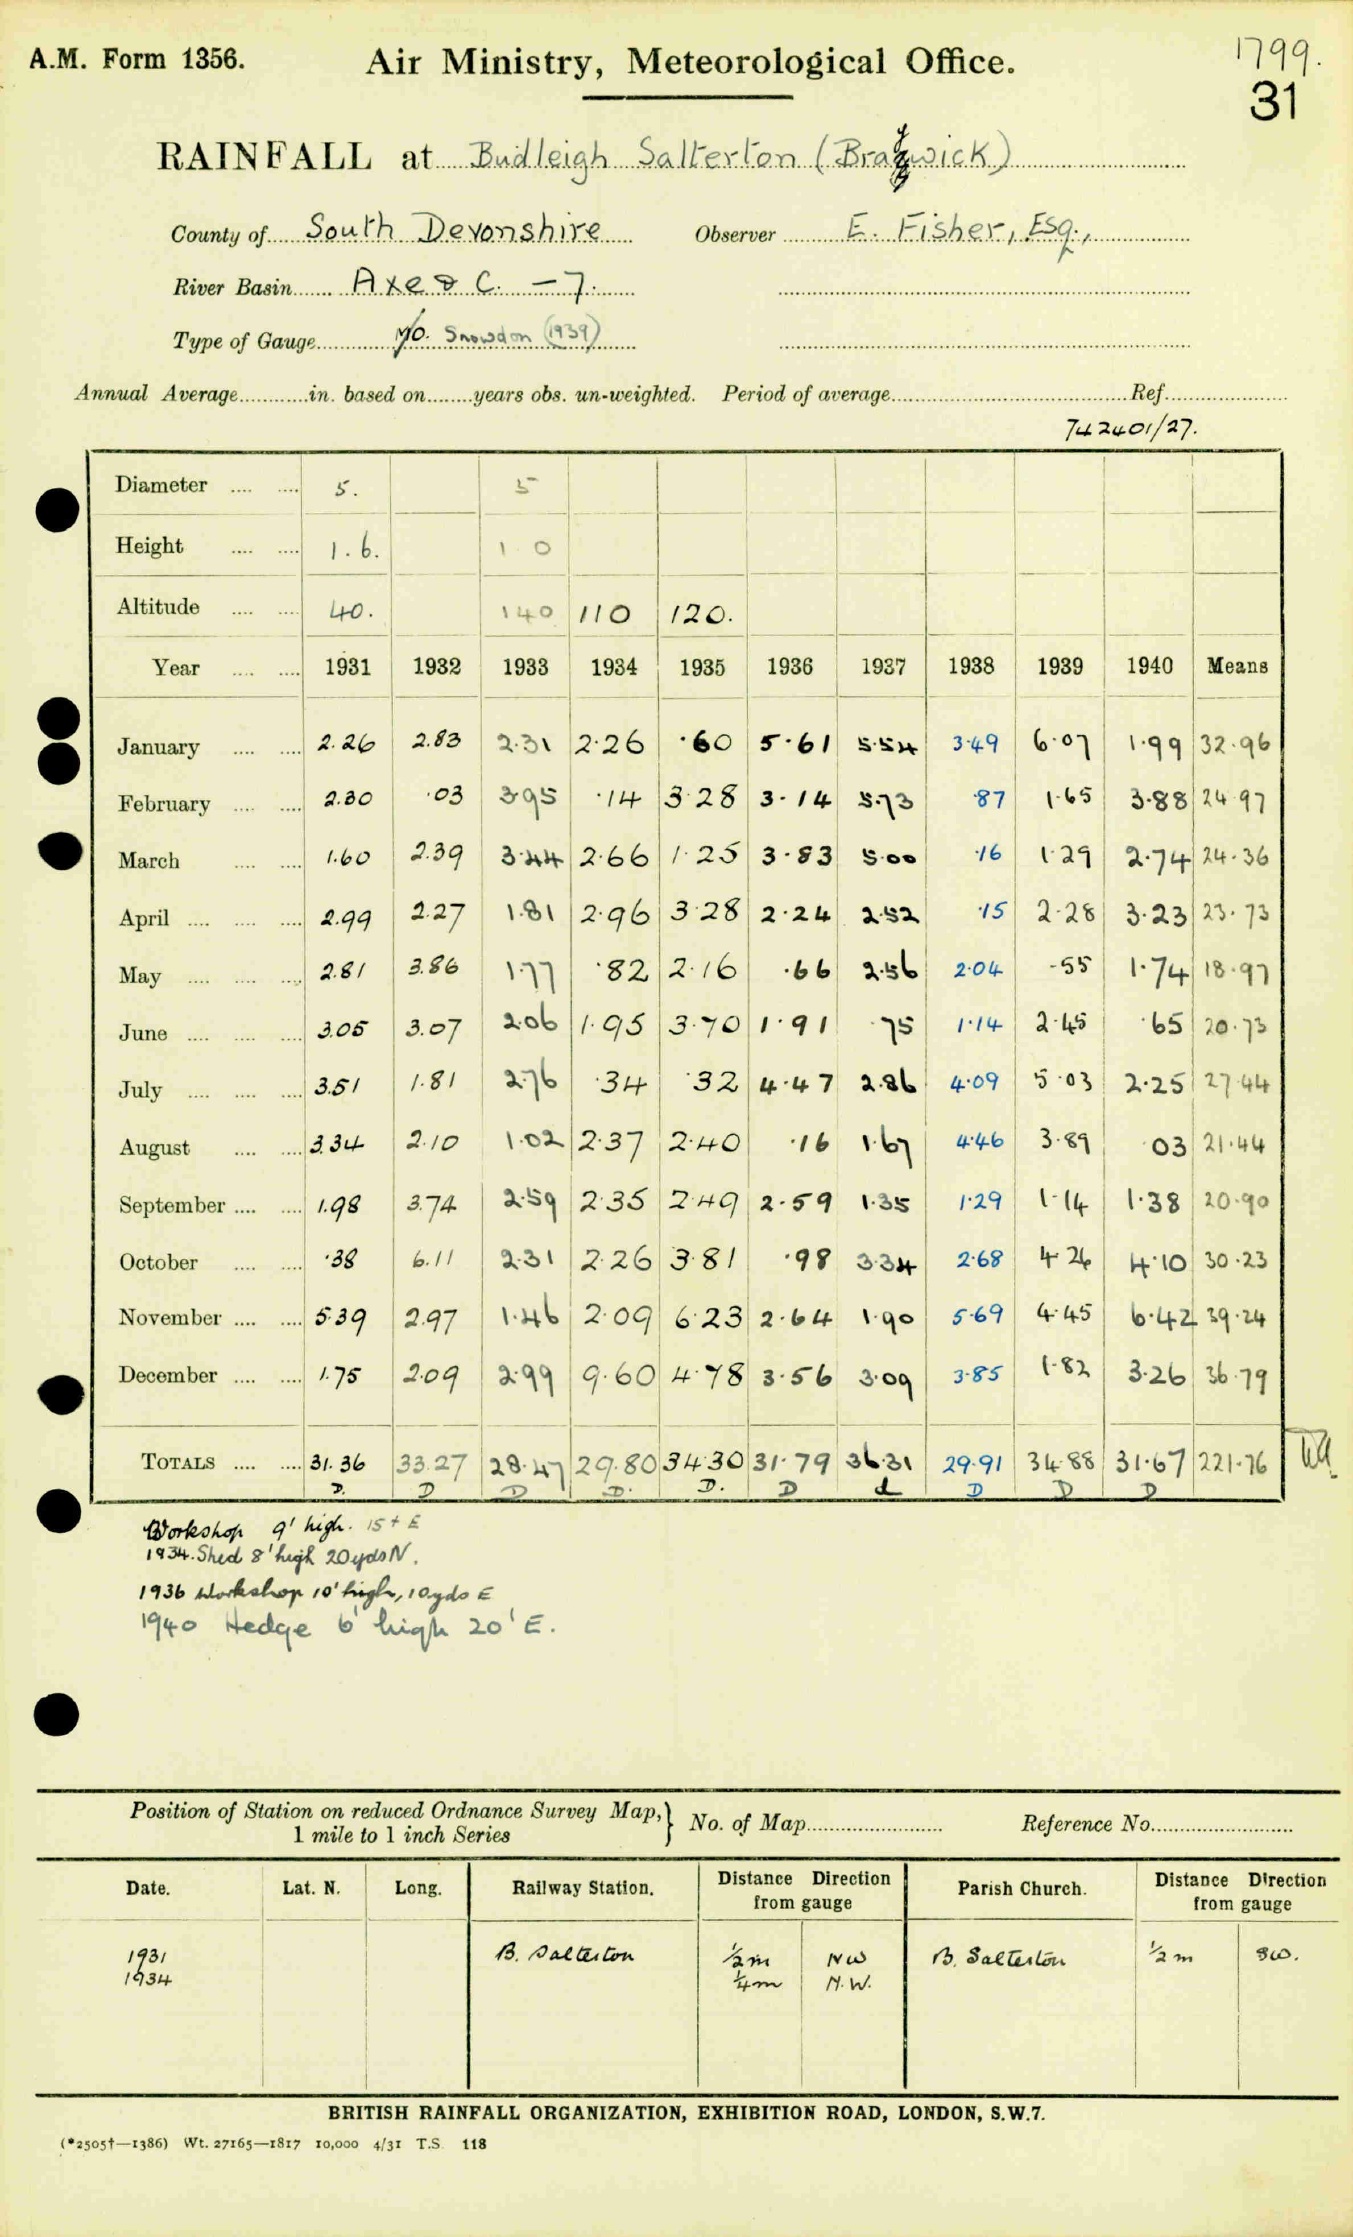 A.M. Form 1356.
Air Ministry, Meteorological Office.
1799.
31
RAINFALL at Budleigh Salterton
County of South Devonshire Observer E. Fisher, Esq.,
River Basin Axe & C. - 7.
Type of Gauge Snowdon (1939)
Annual Average in. based on years obs. un-weighted. Period of average Ref.
742401/27.
Diameter 5. 5
Height 1.6. 1 0
Altitude 40. 140 110 120.
Year 1931 1932 1933 1934 1935 1936 1937 1938 1939 1940 Means
January 2.26 2.83 2.31 2.26 .60 5.61 5.54 3.49 6.07 1.99 32.96
February 2.30 .03 3.95 .14 3.28 3.14 5.73 .87 1.65 3.88 24.97
March 1.60 2.39 3.44 2.66 1.25 3.83 5.00 .16 1.29 2.74 24.36
April 2.99 2.27 1.81 2.96 3.28 2.24 2.52 .15 2.28 3.23 23.73
May 2.81 3.86 1.77 .82 2.16 .66 2.56 2.04 .55 1.74 18.97
June 3.05 3.07 2.06 1.95 3.70 1.91 .75 1.14 2.45 .65 20.73
July 3.51 1.81 2.76 .34 .32 4.47 2.86 4.09 5.03 2.25 27.44
August 3.34 2.10 1.02 2.37 2.40 .16 1.67 4.46 3.89 03 21.44
September 1.98 3.74 2.59 2.35 2.49 2.59 1.35 1.29 1.14 1.38 20.90
October .38 6.11 2.31 2.26 3.81 .98 3.34 2.68 4.26 4.10 30.23
November 5.39 2.97 1.46 2.09 6.23 2.64 1.90 5.69 4.45 6.42 39.24
December 1.75 2.09 2.99 9.60 4.78 3.56 3.09 3.85 1.82 3.26 36.79
TOTALS 31.36 33.27 28.47 29.80 34.30 31.79 36.31 29.91 34.88 31.67 221.76
D. D D D. D. D d D D D
Workshop 9' high. 15+ E
1934. Shed 8' high 20yds N.
1936 Workshop 10' high, 10yds E
1940 Hedge 6' high 20' E.
Position of Station on reduced Ordnance Survey Map, } No. of Map Reference No.
1 mile to 1 inch Series
Date. Lat. N. Long. Railway Station. Distance from gauge Direction Parish Church. Distance from gauge Direction
1931 B. Salterton ½m NW B. Salterton ½ m SW.
1934 ¼m N.W.
BRITISH RAINFALL ORGANIZATION, EXHIBITION ROAD, LONDON, S.W.7.
(*2505†—1386) Wt. 27165—1817 10,000 4/31 T.S. 118